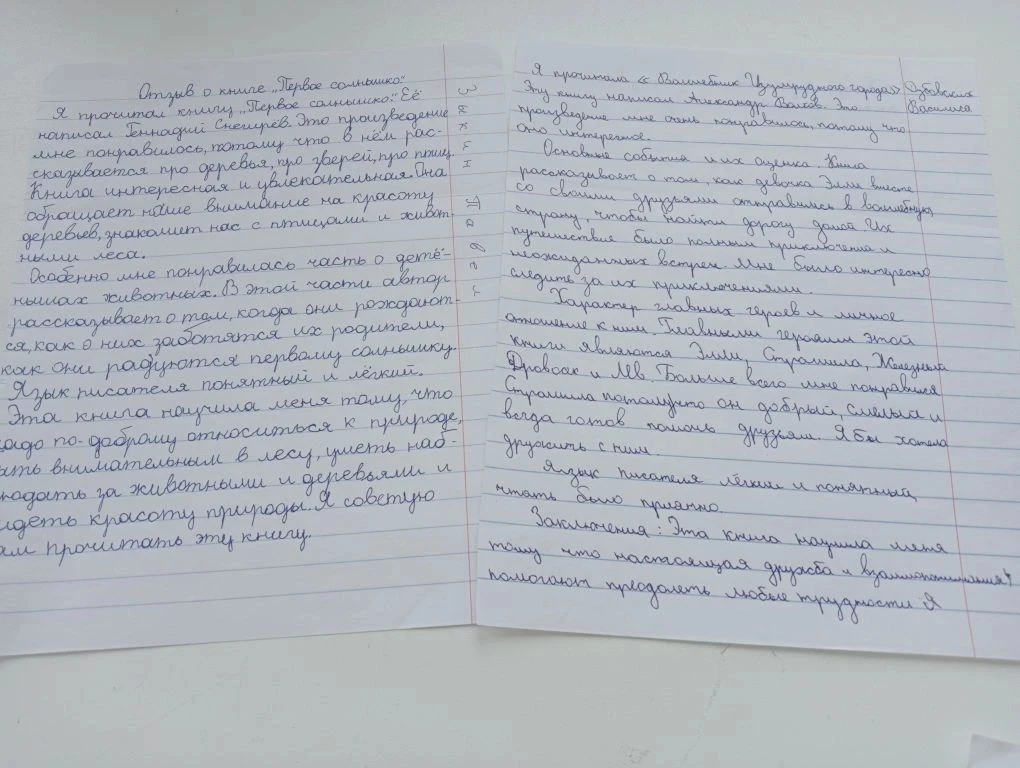 Отзыв о книге „Первое солнышко."
Я прочитал книгу „Первое солнышко." Её
написал Геннадий Снегирёв. Это произведение
мне понравилось, потому что в нём рас-
сказывается про деревья, про зверей, про птиц.
Книга интересная и увлекательная. Она
обращает наше внимание на красоту
деревьев, знакомит нас с птицами и живот-
ными леса.
Особенно мне понравилась часть о детё-
нышах животных. В этой части автор
рассказывает о том, когда они рождают-
ся, как о них заботятся их родители,
как они радуются первому солнышку.
Язык писателя понятный и лёгкий.
Эта книга научила меня тому, что
надо по-доброму относиться к природе,
ыть внимательным в лесу, уметь наб-
юдать за животными и деревьями и
идеть красоту природы. Я советую
ам прочитать эту книгу.
Павел
Я прочитала « Волшебник Изумрудного города»
Василиса
Эту книгу написал Александр Волков. Это
произведение мне очень понравилось, потому что
оно интересное.
Основные события и их оценка. Книга
рассказывает о том, как девочка Элли вместе
со своими друзьями отправились в волшебную
страну, чтобы найти дорогу домой Их
путешествие было полным приключения и
неожиданных встреч. Мне было интересно
следить за их приключениями.
Характер главных героев и личное
отношение к ним. Главными героями этой
книги являются Элли, Страшила, Железный
Дровосек и Лев. Больше всего мне понравился
Страшила потомучто он добрый, смелый и
всегда готов помочь друзьям. Я бы хотела
дружить с ним.
Язык писателя лёгкий и понятный,
читать было приятно.
Заключения: Эта книга научила меня
тому что настоящая дружба и взаимопонимания
помогают преодолеть любые трудности Я